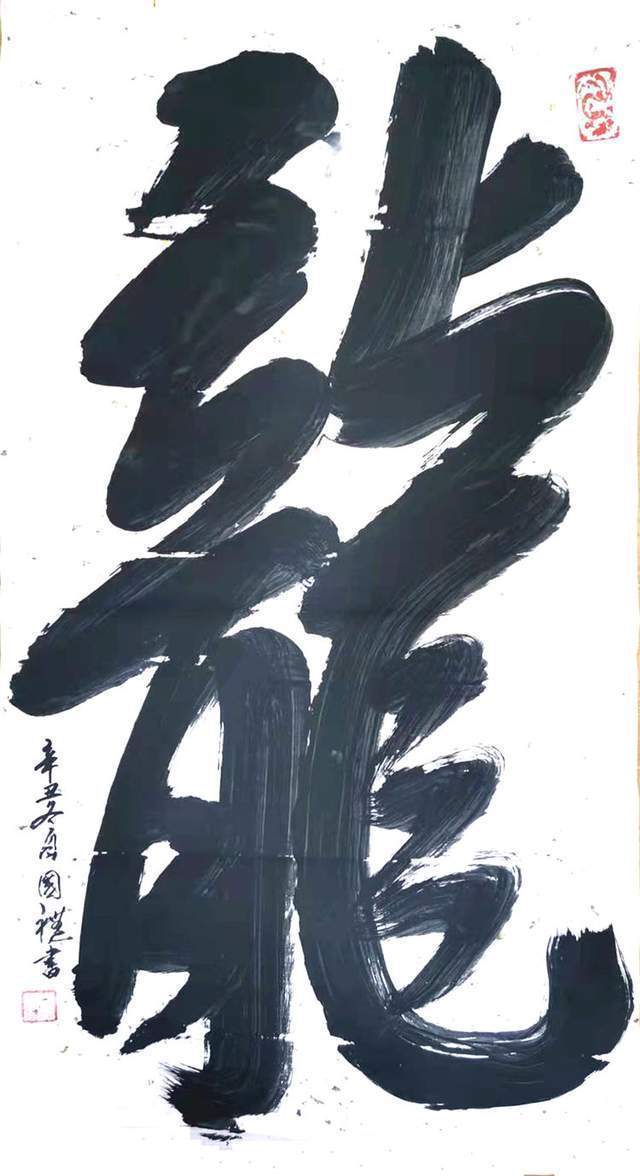 龍
辛丑冬月國禮書